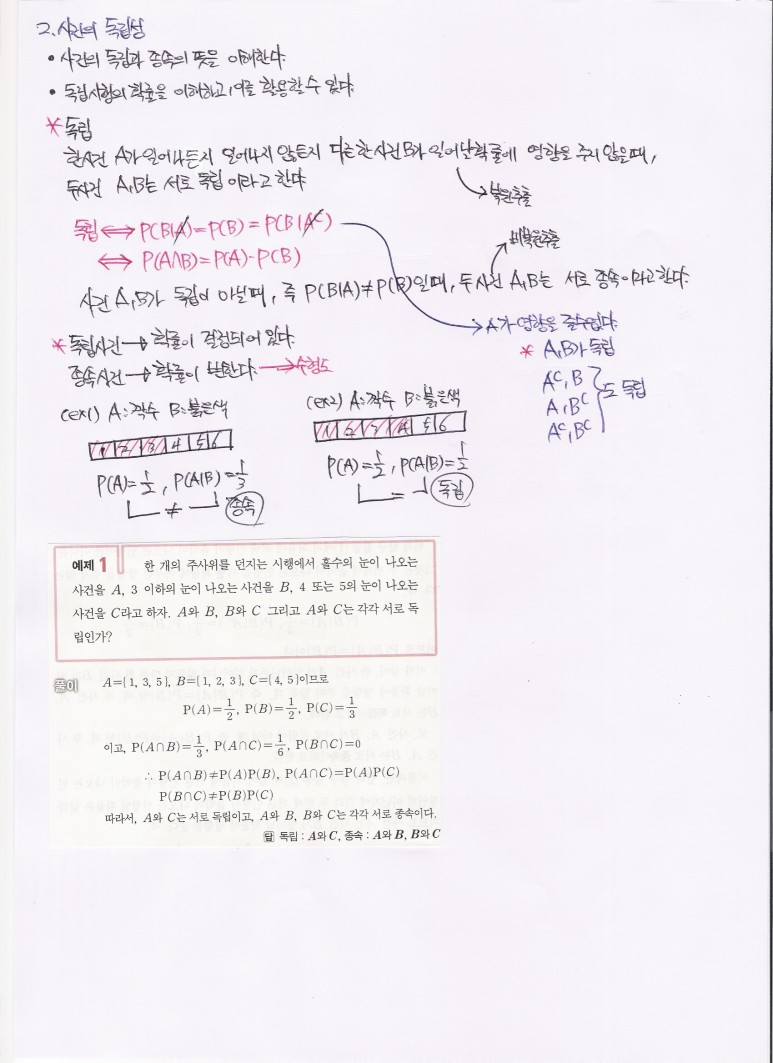 2. 사건의 독립성
• 사건의 독립과 종속의 뜻을 이해한다.
• 독립시행의 확률을 이해하고, 이를 활용할 수 있다.
* 독립
한사건 A가 일어나든지 일어나지 않든지 다른 한 사건 B가 일어날 확률에 영향을 주지 않을때,
두사건 A, B는 서로 독립 이라고 한다.
복원추출
독립 ⟺ P(B|A)=P(B)=P(B|Aᶜ)
비복원추출
⟺ P(A∩B)=P(A)·P(B)
사건 A, B가 독립이 아닐때, 즉 P(B|A)≠P(B)일때, 두사건 A, B는 서로 종속이라고한다.
→ A가 영향을 줄수없다.
* 독립사건 → 확률이 결정되어 있다.
종속사건 → 확률이 변한다. → 수형도
* A, B가 독립
Aᶜ, B
A, Bᶜ
Aᶜ, Bᶜ
도 독립
(ex1) A: 짝수 B: 붉은색
1 2 3 4 5 6
P(A)=1/2, P(A|B)=1/3
≠ 종속
(ex2) A: 짝수 B: 붉은색
1 2 3 4 5 6
P(A)=1/2, P(A|B)=1/2
= 독립
예제 1 한 개의 주사위를 던지는 시행에서 홀수의 눈이 나오는
사건을 A, 3 이하의 눈이 나오는 사건을 B, 4 또는 5의 눈이 나오는
사건을 C라고 하자. A와 B, B와 C 그리고 A와 C는 각각 서로 독
립인가?
풀이 A={1, 3, 5}, B={1, 2, 3}, C={4, 5}이므로
P(A)=1/2, P(B)=1/2, P(C)=1/3
이고, P(A∩B)=1/3, P(A∩C)=1/6, P(B∩C)=0
∴ P(A∩B)≠P(A)P(B), P(A∩C)=P(A)P(C)
P(B∩C)≠P(B)P(C)
따라서, A와 C는 서로 독립이고, A와 B, B와 C는 각각 서로 종속이다.
답 독립 : A와 C, 종속 : A와 B, B와 C